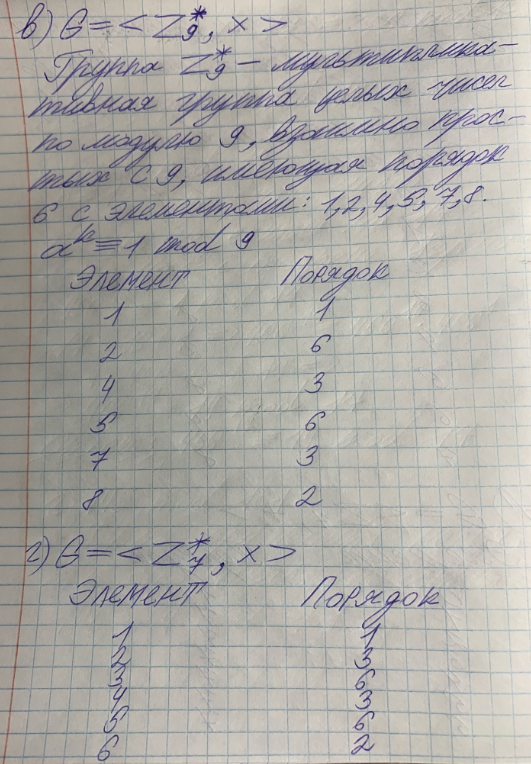 в) G = < Z₉*, × >
Группа Z₉* - мультиплика-
тивная группа целых чисел
по модулю 9, взаимно прос-
тых с 9, имеющая порядок
6 с элементами: 1,2,4,5,7,8.
aᵏ ≡ 1 mod 9
Элемент Порядок
1 1
2 6
4 3
5 6
7 3
8 2
г) G = < Z₇*, × >
Элемент Порядок
1 1
2 3
3 6
4 3
5 6
6 2